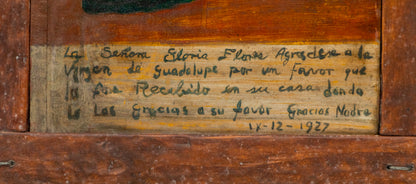 La Señora Gloria Flores Agradese a la
Virgen de Guadalupe por un Favor que
la Recebido en su casa dando
Le Las Gracias a su favor Gracias Madre
IX-12-1927